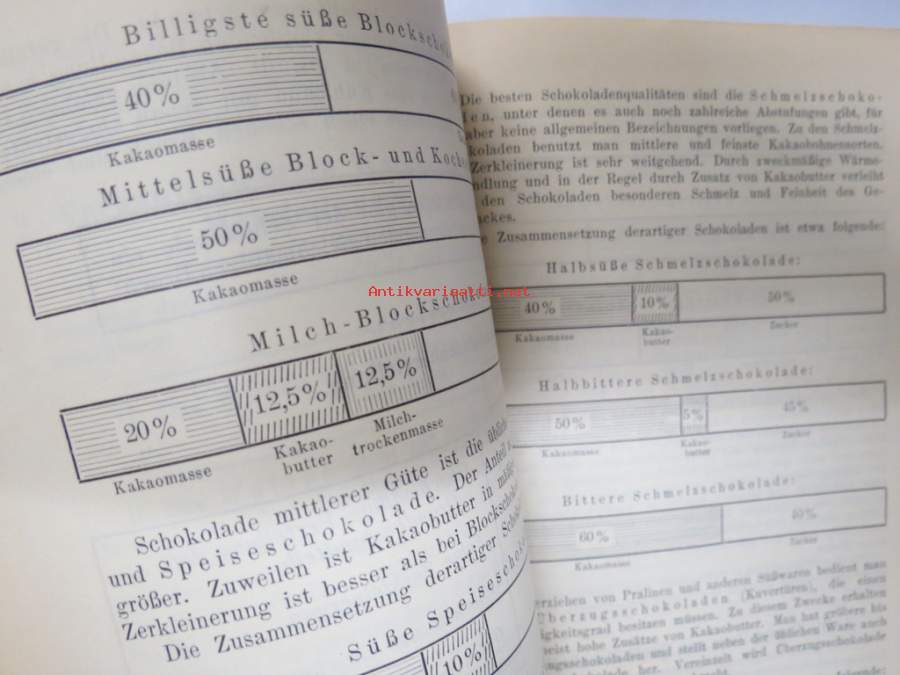 Billigste süße Blockschoko
40%
Kakaomasse
Mittelsüße Block- und Kocha
50%
Kakaomasse
Milch-Blockschoko
20%
12,5%
12,5%
Kakaomasse
Kakao-
butter
Milch-
trockenmasse
Schokolade mittlerer Güte ist die übliche
und Speiseschokolade. Der Anteil a
größer. Zuweilen ist Kakaobutter in mäßige
Zerkleinerung ist besser als bei Blockschoko
Die Zusammensetzung derartiger Schoko
Süße Speiseschok
10%
Die besten Schokoladenqualitäten sind die Schmelzschoko-
len, unter denen es auch noch zahlreiche Abstufungen gibt, für
aber keine allgemeinen Bezeichnungen vorliegen. Zu den Schmelz-
koladen benutzt man mittlere und feinste Kakaobohnensorten.
Zerkleinerung ist sehr weitgehend. Durch zweckmäßige Wärme-
ndlung und in der Regel durch Zusatz von Kakaobutter verleiht
den Schokoladen besonderen Schmelz und Feinheit des Ge-
ackes.
e Zusammensetzung derartiger Schokoladen ist etwa folgende:
Halbsüße Schmelzschokolade:
40%
10%
50%
Kakaomasse
Kakao-
butter
Zucker
Halbbittere Schmelzschokolade:
50%
5%
45%
Kakaomasse
Kakao-
butter
Zucker
Bittere Schmelzschokolade:
60%
40%
Kakaomasse
Zucker
erziehen von Pralinen und anderen Süßwaren bedient man
Überzugsschokoladen (Kuvertüren), die einen
igkeitsgrad besitzen müssen. Zu diesem Zwecke erhalten
eist hohe Zusätze von Kakaobutter. Man hat größere bis
ngsschokoladen und stellt neben der üblichen Ware auch
kolade her. Vereinzelt wird Überzugsschokolade
folgende:
Antikvariaatti.net